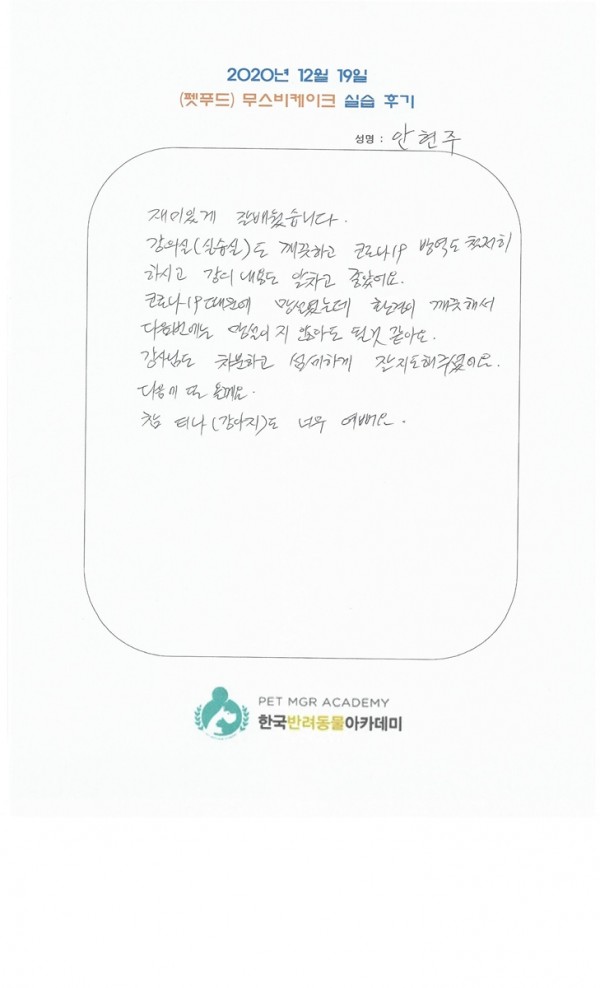 2020년 12월 19일
(펫푸드) 무스비케이크 실습 후기
성명 : 안현주
재미있게 잘배웠습니다.
강의실(실습실)도 깨끗하고 코로나19 방역도 철저히
하시고 강의 내용도 알차고 좋았어요.
코로나19때문에 망설였는데 환경이 깨끗해서
다음번에는 망설이지 않아도 될것 같아요.
강사님도 차분하고 섬세하게 잘지도해주셨어요.
다음에 또 올게요.
참 티나(강아지)도 너무 예뻐요.
PET MGR ACADEMY
한국반려동물아카데미